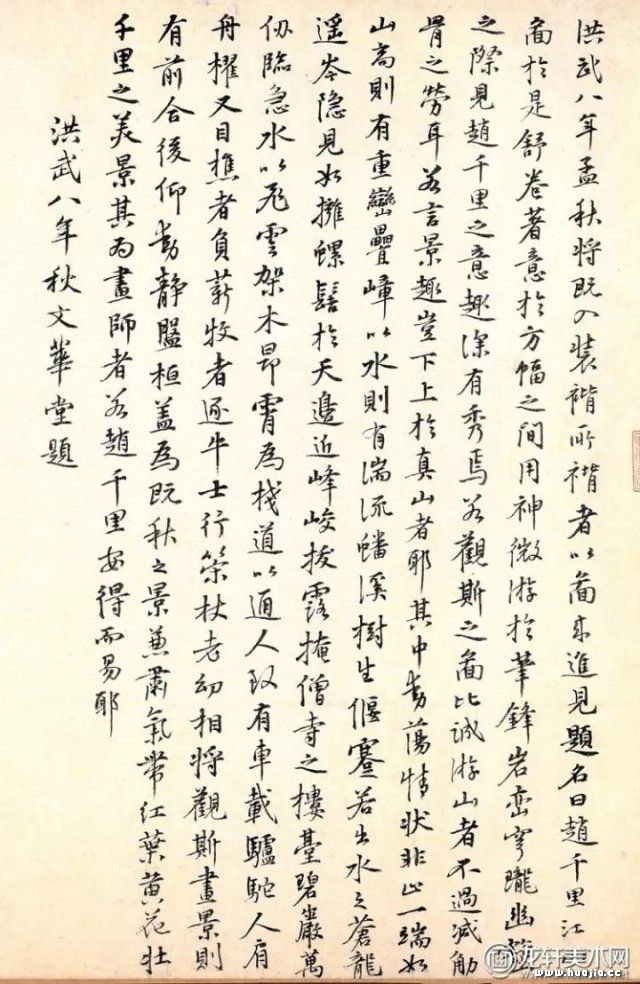 洪武八年孟秋将既入装褙所褙者以啚来進見題名曰趙千里江山
啚於是舒卷著意於方幅之間用神微游於筆鋒岩峦穹隴幽壑
之際見趙千里之意趣深有秀焉若觀斯之啚比誠游山者不過减觔
骨之勞耳若言景趣豈下上於真山者耶其中動蕩情狀非止一端如
山高則有重巒疊嶂以水則有湍流蟠溪樹生偃蹇若出水之蒼龍
遥岑隐見如擁螺髻於天邉近峰峻拔露掩僧寺之樓臺碧巖萬
仭臨急水以飛雲架木昂霄為棧道以通人致有車載驢駝人肩
舟櫂又目樵者負薪牧者逐牛士行策杖老幼相将觀斯畫景則
有前合後仰動静盤桓盖為既秋之景兼肅氣帶紅葉黄花壯
千里之美景其為畫師者若趙千里安得而易耶
洪武八年秋文華堂題
龙轩美术网
www.huajia.cc